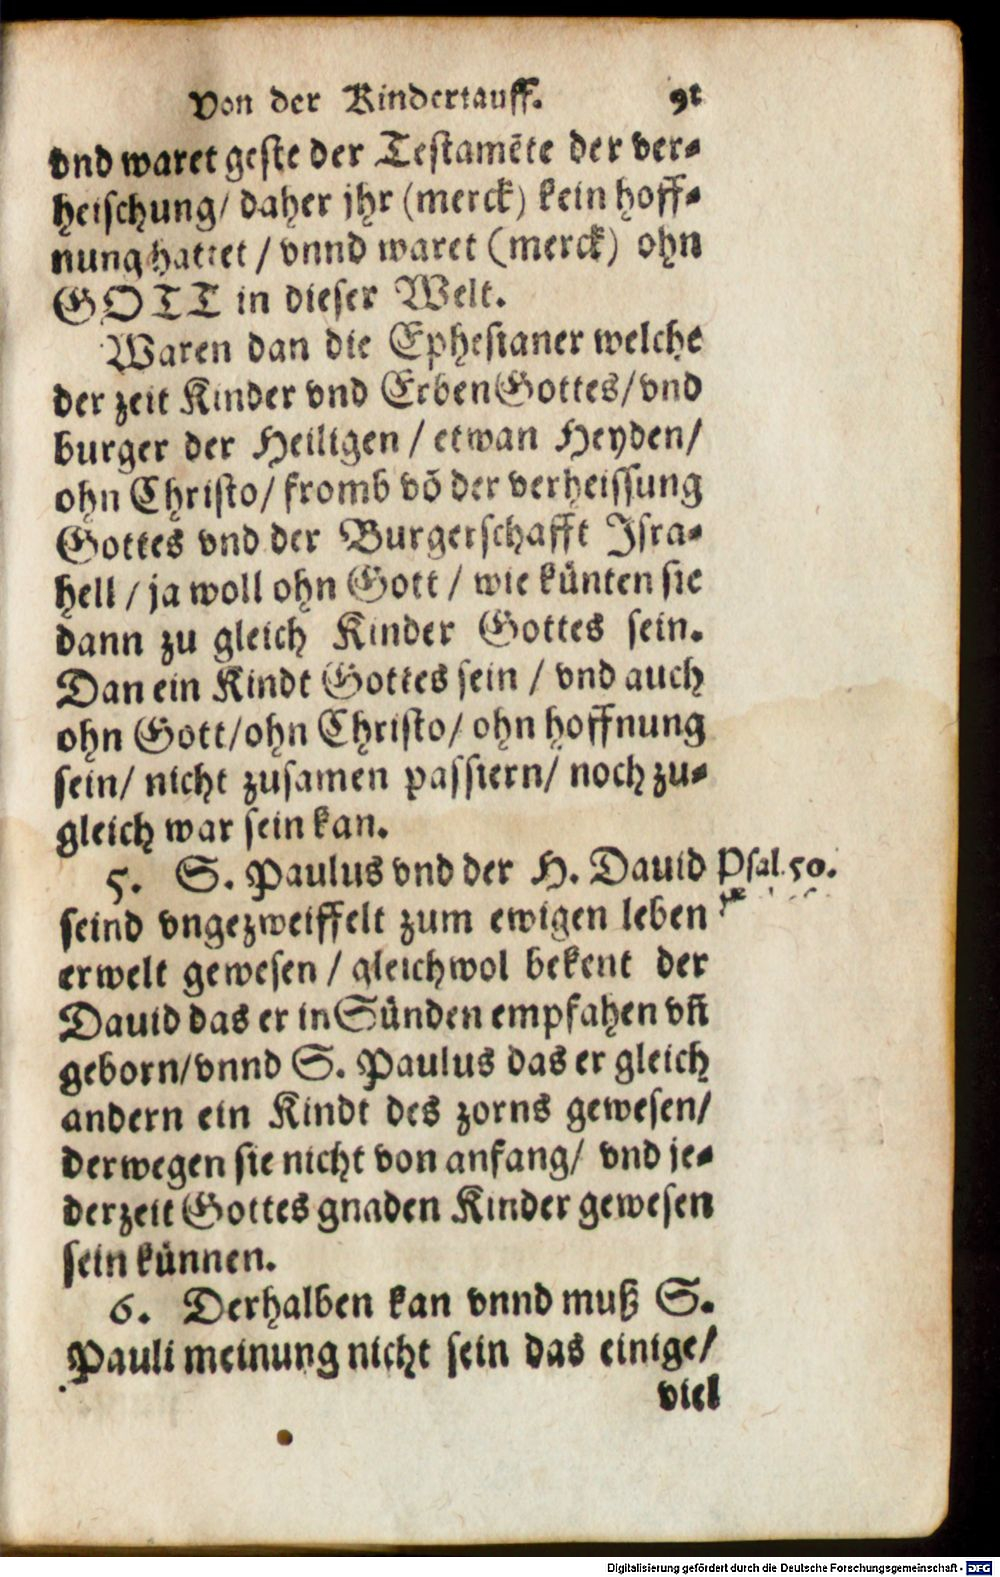 Von der Kindertauff. 91
vnd waret geste der Testamēte der ver-
heischung/ daher jhr (merck) kein hoff-
nung hattet / vnnd waret (merck) ohn
GOTT in dieser Welt.
Waren dan die Ephesianer welche
der zeit Kinder vnd Erben Gottes/ vnd
burger der Heiligen / etwan Heyden/
ohn Christo/ fromb võ der verheissung
Gottes vnd der Burgerschafft Isra-
hell / ja woll ohn Gott / wie künten sie
dann zu gleich Kinder Gottes sein.
Dan ein Kindt Gottes sein / vnd auch
ohn Gott/ ohn Christo/ ohn hoffnung
sein/ nicht zusamen passiern/ noch zu-
gleich war sein kan.
5. S. Paulus vnd der H. Dauid Psal. 50.
seind vngezweiffelt zum ewigen leben
erwelt gewesen / gleichwol bekent der
Dauid das er in Sünden empfahen vñ
geborn/ vnnd S. Paulus das er gleich
andern ein Kindt des zorns gewesen/
derwegen sie nicht von anfang/ vnd je-
derzeit Gottes gnaden Kinder gewesen
sein künnen.
6. Derhalben kan vnnd muß S.
Pauli meinung nicht sein das einige/
viel
Digitalisierung gefördert durch die Deutsche Forschungsgemeinschaft - DFG